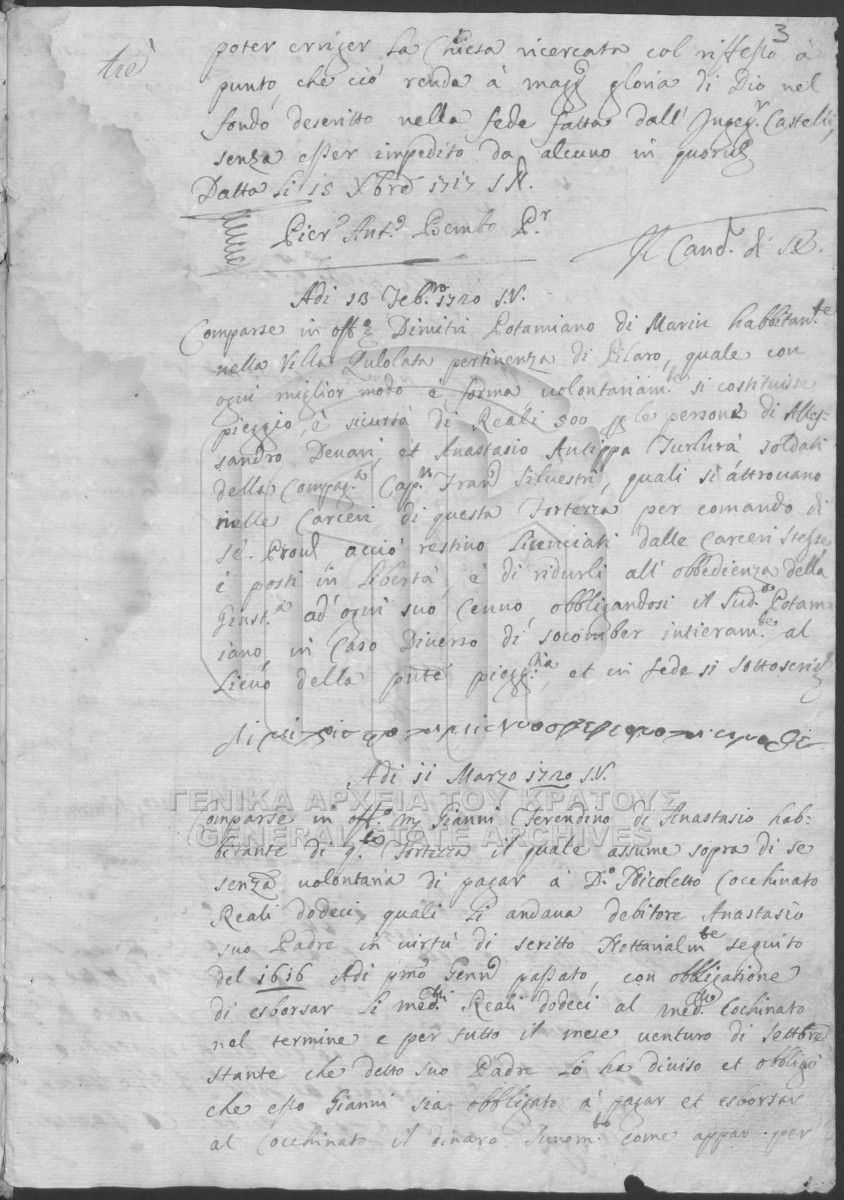 3
tre
poter erriger La Chiesa ricercata col riflesso à
punto, che ciò renda à magg. gloria di Dio nel
fondo descritto nella fede fatta dall' Ingeg.r Castelli,
senza esser impedito da alcuno in quorum
Datta Li 15 Xbre 1717 S.N.
Pier Ant.o Bembo P.r
Il Canc.r di S.E.
Adi 13 Feb.ro 1720 S.V.
Comparse in off.o Dimitri Potamiano di Marin habbitan.te
nella Villa Qulolata pertinenza di Pilaro, quale con
ogni miglior modo è forma volontariam.te si costituisse
pieggio, è sicurtà di Reali 500 le persone di Alles-
sandro Devari, et Anastasio Antippa Turlurà soldati
della Compag.a Cap.n Fran.o Silvestri, quali si attrovano
nelle Carceri di questa Fortezza per comando di
S.E. Prov. acciò restino Licenciati dalle Carceri stesse
è posti in Libertà, è di ridurli all' obbedienza della
Giust.a ad' ogni suo Cenno, obbligandosi il Sud.o Potam-
iano, in Caso Diverso di socomber intieram.te al
Lievo della pnte piegg.ria, et in fede si sottoscrive
Adi 11 Marzo 1720 S.V.
ΓΕΝΙΚΑ ΑΡΧΕΙΑ ΤΟΥ ΚΡΑΤΟΥΣ
GENERAL STATE ARCHIVES
Comparse in off.o Gianni Cserendino di Anastasio hab-
bitante di q.ta Fortezza il quale assume sopra di se
senza volontaria di pagar à D.o Nicoletto Cocchinato
Reali dodeci, quali Li andava debitore Anastasio
suo Padre in virtù di scritto Nettarialm.te seguito
del 1616 Adi pmo Genn.o passato, con obbligatione
di esborsar Li med.mi Reali dodeci al med.mo Cochinato
nel termine e per tutto il mese venturo di Settbre
stante che detto suo Padre Lo ha diviso et obbligò
che esso Gianni sia obbligato à pagar et esborsar
al Cocchinato il dinaro come appar per